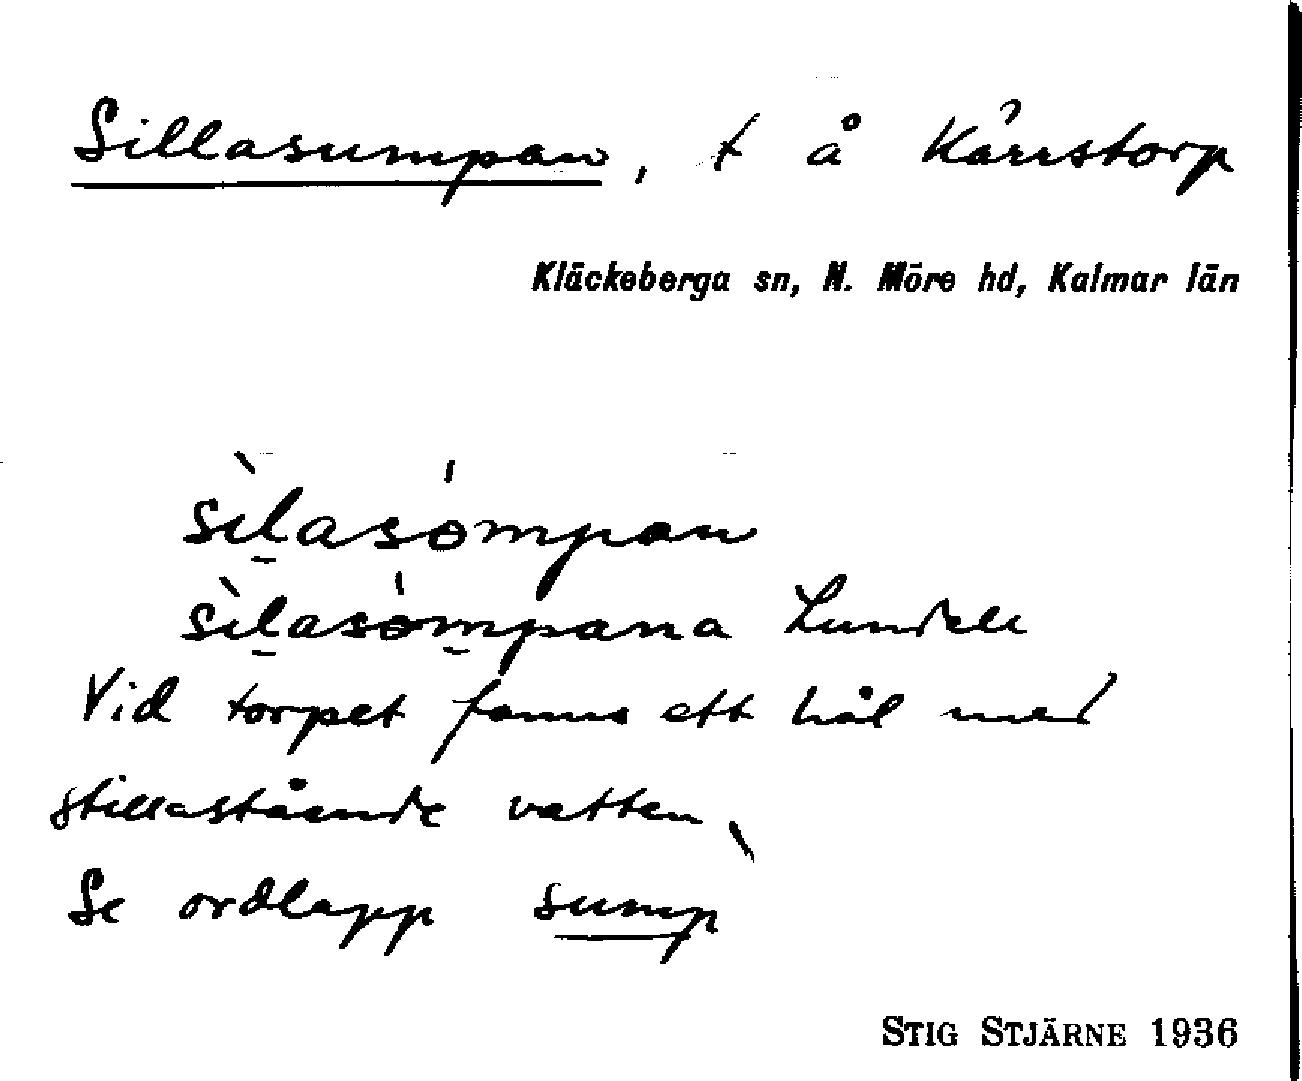 Sillasumpan, t å Kärrstorp
Kläckeberga sn, N. Möre hd, Kalmar län
sìlasómpan
sìlasómpana Lundell
Vid torpet fanns ett hål med
stillastående vatten.
Se ordlapp sump
STIG STJÄRNE 1936